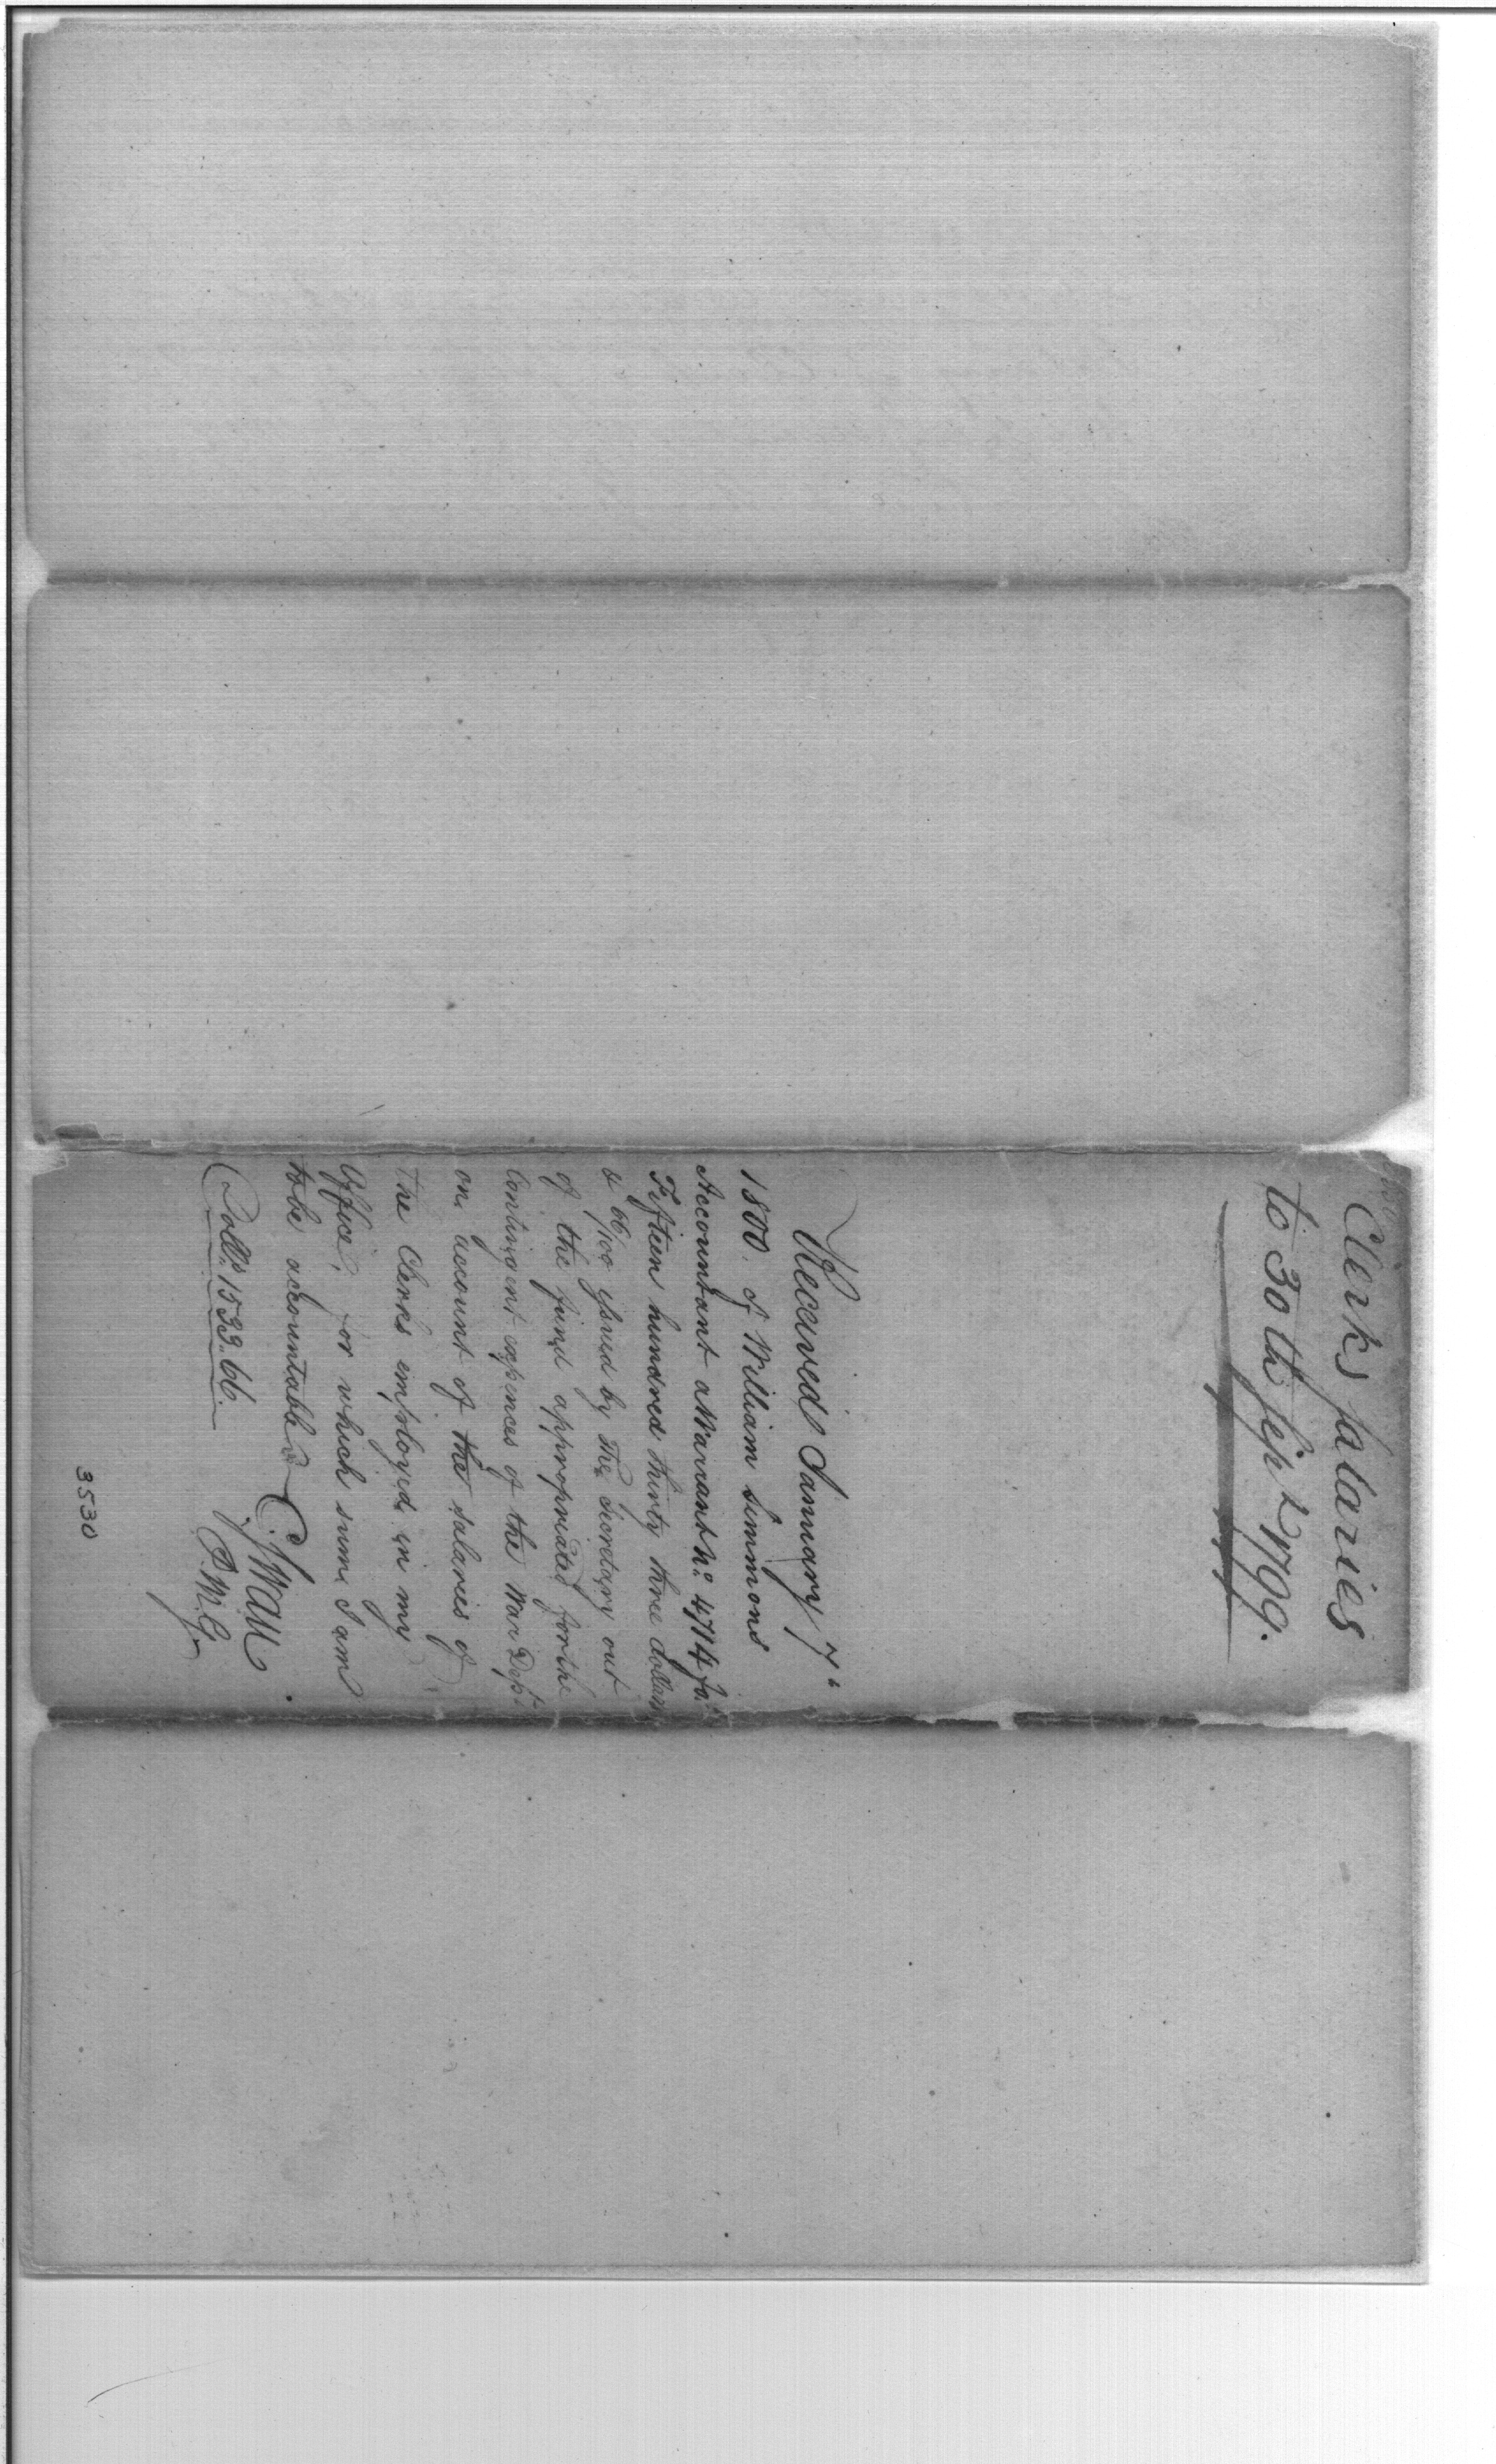 Clerks salaries
to 30th Sept 1799.
Received January 7th
1800. of William Simmons
Accountant a Warrant No. 4714 for
Fifteen hundred thirty three dollars
& 66/100 issued by The Secretary out
of the fund appropriated for the
Contingent expences of the War Dept.
on account of the salaries of
the Clerks employed in my
Office, for which sum I am
to be accountable
Dolls. 1533.66.
P.M.G.
3530